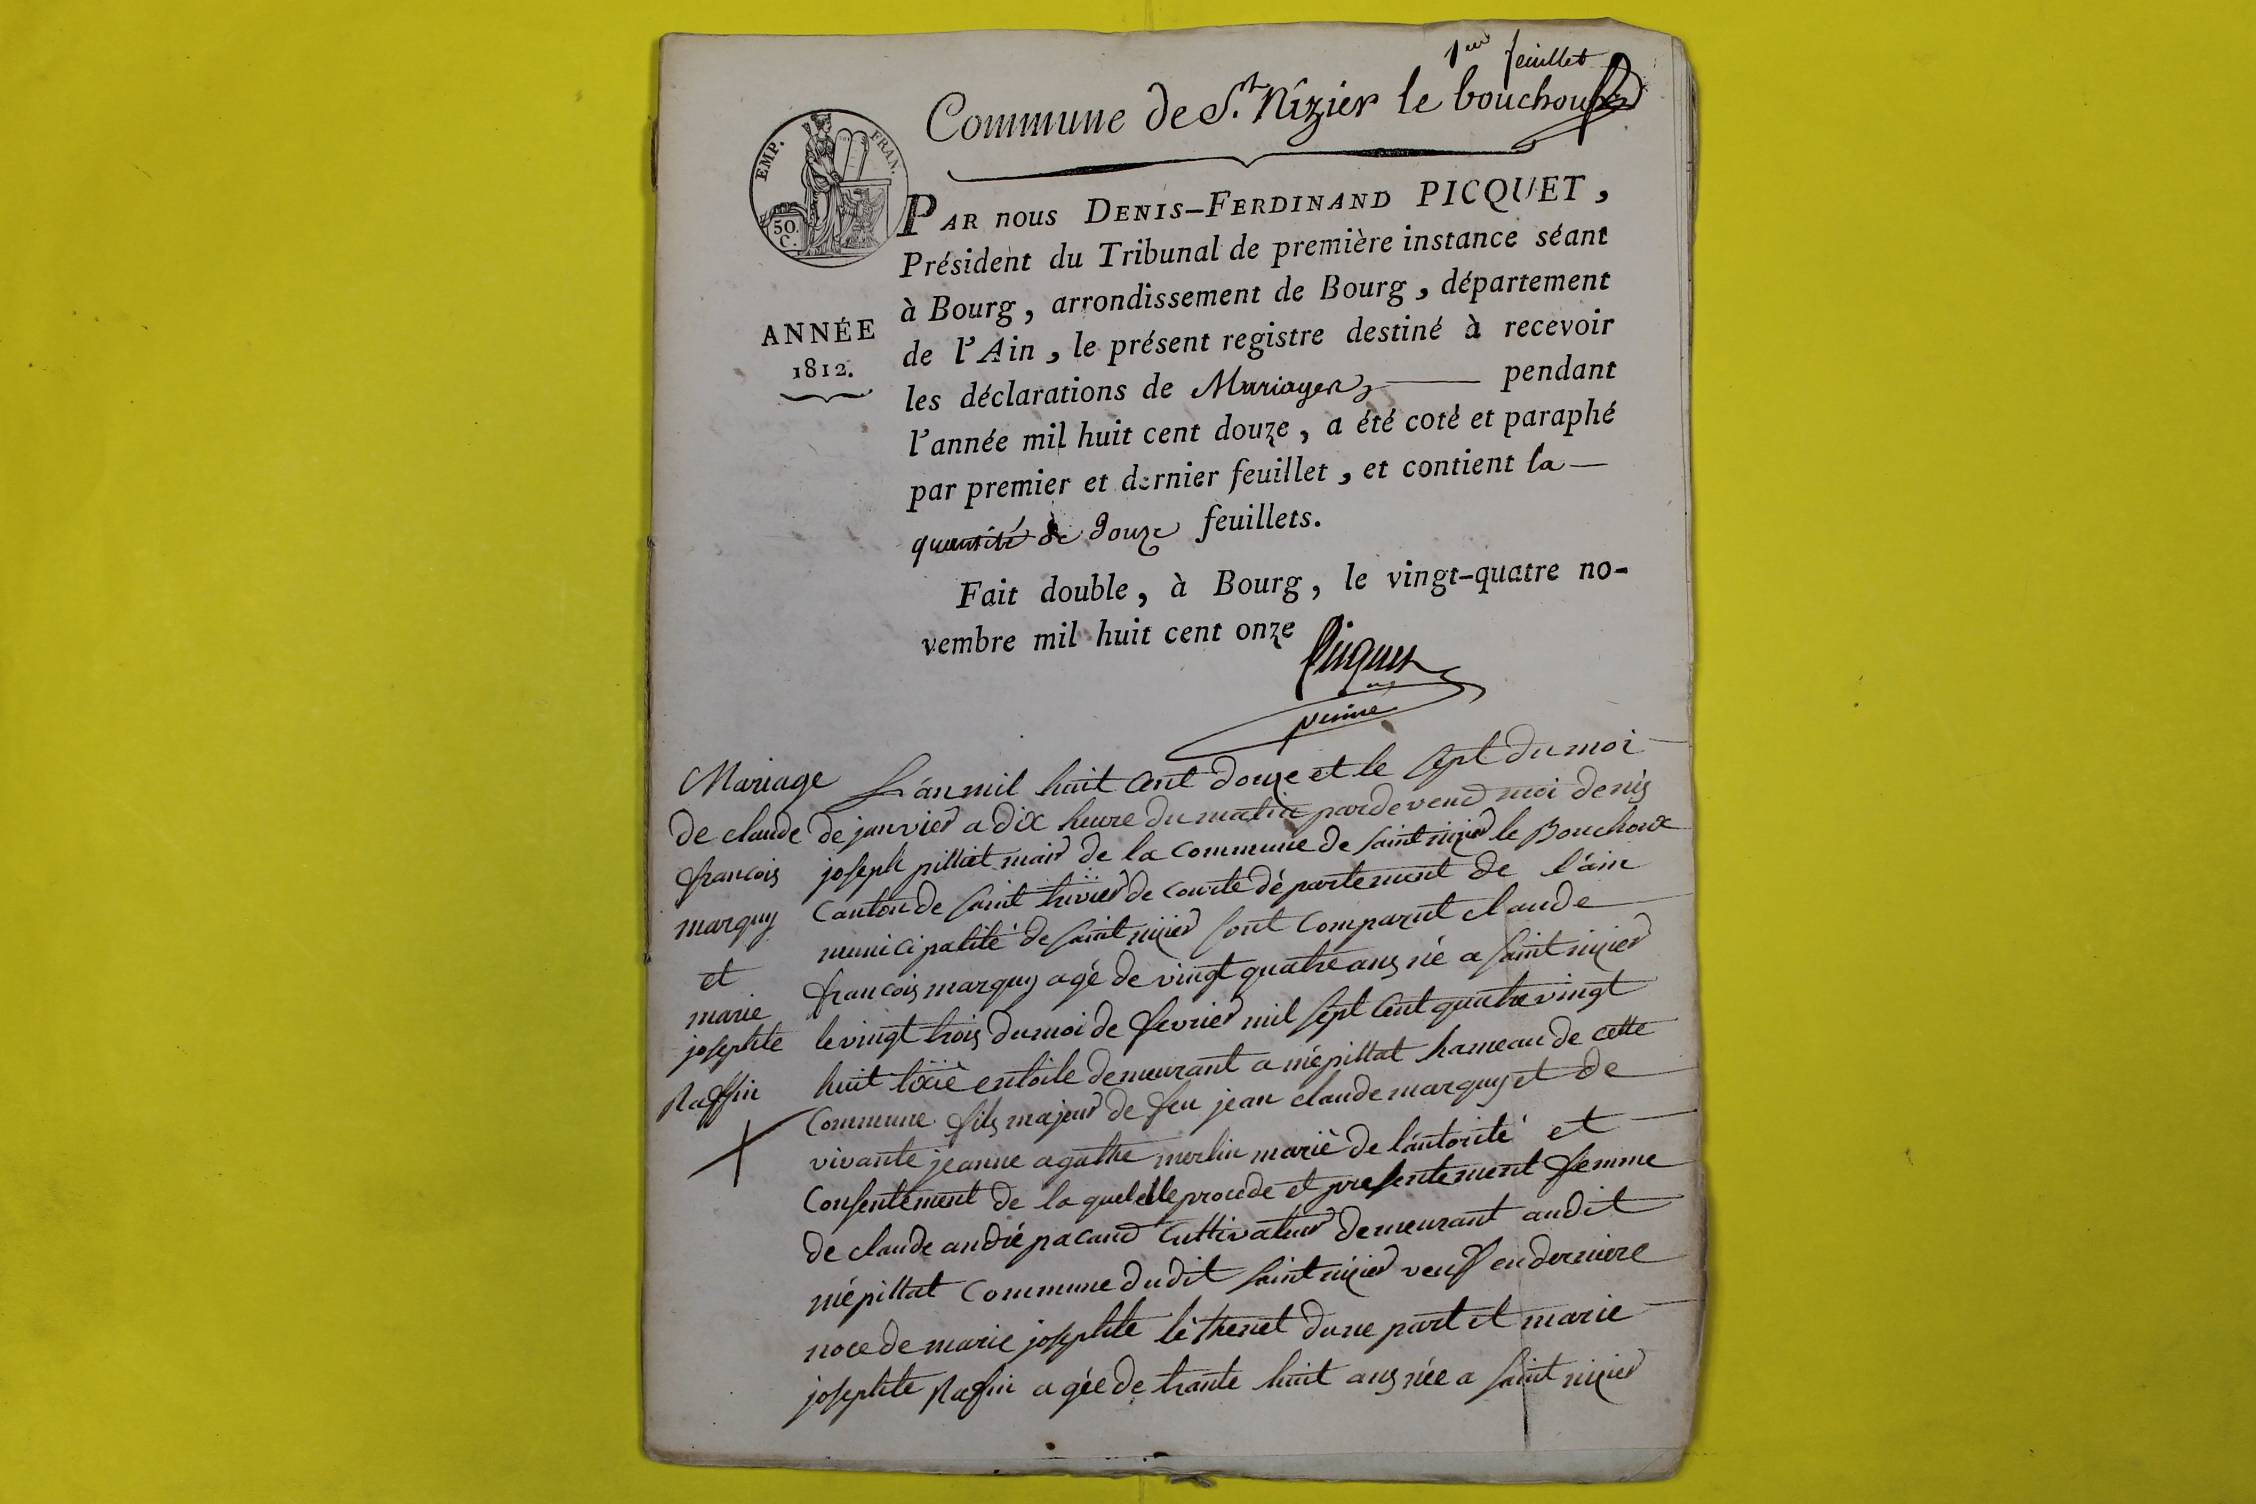 1er feuillet
Commune de St. Nizier le bouchoux
EMP. FRAN.
50.
C.
ANNÉE
1812.
PAR nous DENIS-FERDINAND PICQUET,
Président du Tribunal de première instance séant
à Bourg, arrondissement de Bourg, département
de l'Ain, le présent registre destiné à recevoir
les déclarations de Mariages pendant
l'année mil huit cent douze, a été coté et paraphé
par premier et dernier feuillet, et contient la
quantité de douze feuillets.
Fait double, à Bourg, le vingt-quatre no-
vembre mil huit cent onze
Picquet
Mariage
de claude
francois
marquy
et
marie
josephte
Raffin
L'an mil huit cent douze et le sept du moi
de janvier a dix heure du matin pardevend moi denis
joseph pilliet mair de la commune de saint nizier le Bouchoux
canton de saint trivier de courte département de l'ain
municipalité de saint nizier sont comparut claude
francois marquy agé de vingt quatre ans né a saint nizier
le vingt trois du moi de fevrier mil sept cent quatre vingt
huit tixiè entoile demeurant a mépillat hameau de cette
commune fils majeur de feu jean claude marquy et de
vivante jeanne agathe merlin marié de l'autorité et
consentement de la quelelle procede et presentement femme
de claude andré pacaud cultivateur demeurant audit
mépillat commune dudit saint nizier veuf en derniere
noce de marie josephte léthenet dune part et marie
josephte Raffin agée de trante huit ans née a saint nizier